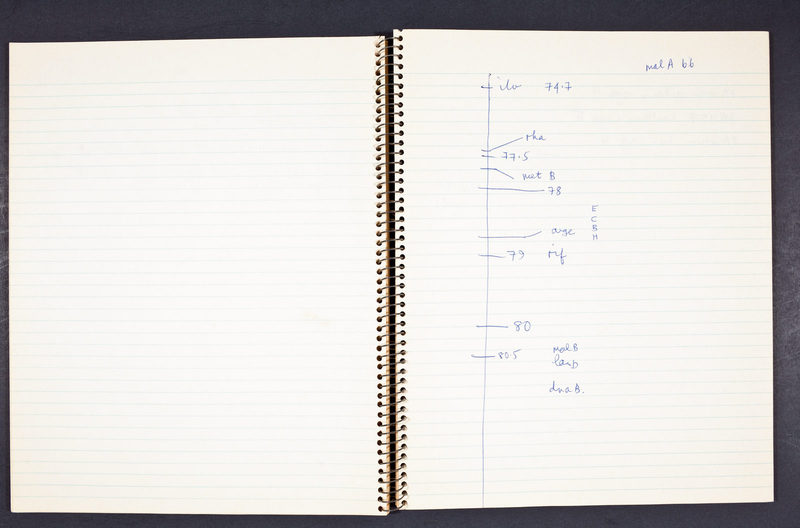 malA 66
ilv 74.7
rha
77.5
met B
78
E
C
B
H
arge
79 rif
80
80.5 malB
lamb
dna B.